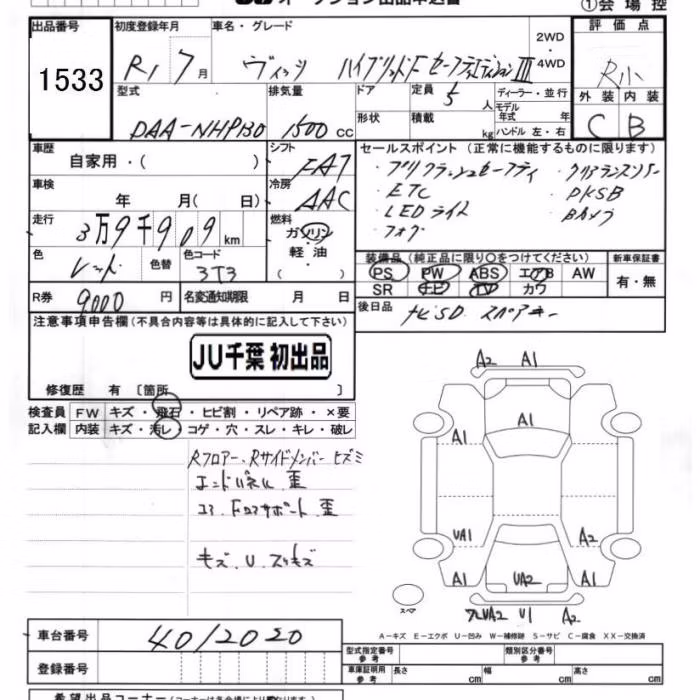 オークション出品申込書
①会場控
出品番号 初度登録年月 車名・グレード 2WD・4WD 評価点
1533 R1 7月 ヴィッツ ハイブリッドF セーフティエディションIII R小
外装 内装
C B
型式 排気量 ドア 定員 ディーラー・並行
DAA-NHP130 1500cc 5人 モデル年式 年式
形状 積載 kg ハンドル 左・右
車歴 シフト セールスポイント (正常に機能するものに限ります)
自家用・( ) FAT ・プリクラッシュセーフティ ・クリアランスソナー
車検 冷房 ・ETC ・PKSB
年 月( 日) AAC ・LEDライト ・Bカメラ
走行 燃料 ・フォグ
3万9千909km ガソリン・軽油・( )
色 色替 色コード 装備品 (純正品に限り○をつけてください) 新車保証書
レッド 3T3 PS PW ABS エアB AW 有・無
SR ナビ TV カワ
R券 9,000円 名変通知期限 月 日 後日品 ナビSD スペアキー
注意事項申告欄 (不具合内容等は具体的に記入して下さい)
JU千葉 初出品
修復歴 有 〔箇所 〕
検査員 FW キズ・飛石・ヒビ割・リペア跡・×要
記入欄 内装 キズ・汚レ・コゲ・穴・スレ・キレ・破レ
Rフロアー、Rサイドメンバー ヒズミ
エンドパネル 歪
コア Fロアサポート 歪
キズ.U.スリキズ
A2 A1
A1
A1
UA1 A2
A1 UA2 A1
スペア UA2 U1 A2
A-キズ E-エクボ U-凹み W-補修跡 S-サビ C-腐食 XX-交換済
車台番号 40/2020
登録番号
型式指定番号 参考 類別区分番号 参考
車庫証明用 参考 長さ cm 幅 cm 高さ cm
希望出品コーナー